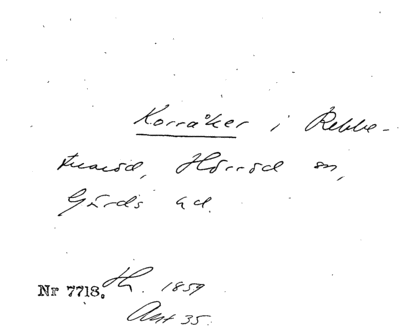 Korråker i Rebbe-
tuaröd, Hörröd sn,
Gärds hd.
Nr 7718. Th. 1859
Ant 35.